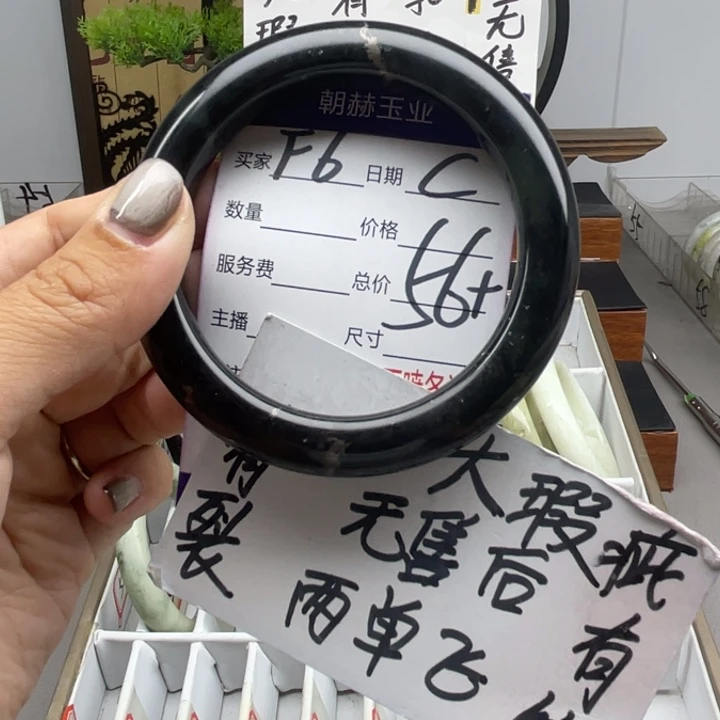 无
瑕
售
朝赫玉业
买家 F6 日期 C
数量 价格
服务费 总价 56+
主播 尺寸
大瑕疵有
有裂
无售后
两单飞